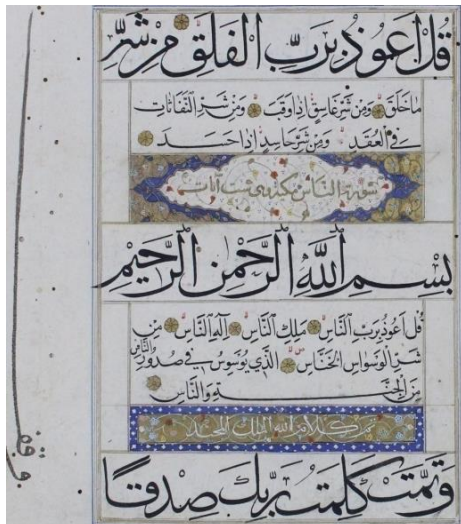 قُلْ أَعُوذُ بِرَبِّ الْفَلَقِ مِنْ شَرِّ
مَا خَلَقَ وَمِنْ شَرِّ غَاسِقٍ إِذَا وَقَبَ وَمِنْ شَرِّ النَّفَّاثَاتِ
فِي الْعُقَدِ وَمِنْ شَرِّ حَاسِدٍ إِذَا حَسَدَ
سورة الناس مكية وهي ست آيات
بِسْمِ اللَّهِ الرَّحْمَنِ الرَّحِيمِ
قُلْ أَعُوذُ بِرَبِّ النَّاسِ مَلِكِ النَّاسِ إِلَهِ النَّاسِ مِنْ
شَرِّ الْوَسْوَاسِ الْخَنَّاسِ الَّذِي يُوَسْوِسُ فِي صُدُورِ النَّاسِ
مِنَ الْجِنَّةِ وَالنَّاسِ
كلام الله الملك
وَتَمَّتْ كَلِمَتُ رَبِّكَ صِدْقًا
وقف